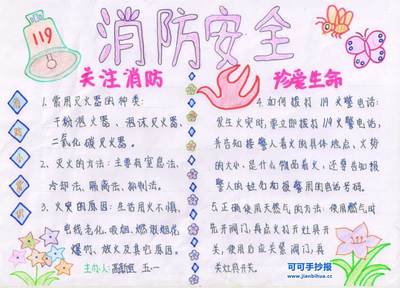 消防安全
119
关注消防
珍爱生命
消防小常识
1. 常用灭火器的种类:
干粉灭火器、泡沫灭火器、
二氧化碳灭火器。
2. 灭火的方法:主要有窒息法、
冷却法、隔离法、抑制法。
3. 火灾的原因:生活用火不慎、
电线老化、吸烟、燃放烟花
爆竹、放火及其它原因。
主办人: 五一
4. 如何拨打119火警电话:
发生火灾时,要立即拨打119火警电话,
并告知接警人着火的具体地点、火势
的大小、是什么物品着火,还要告知报
警人的姓名和报警用的电话号码。
5. 正确使用天然气的方法:使用燃气时
先开阀门,再点火打开灶具开
关,使用后应关紧阀门,再
关灶具开关。
可可手抄报
www.jianbihua.cc